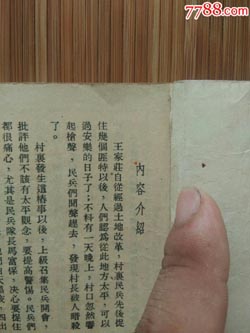 7788.com
內容介紹
王家莊自從經過土地改革，村裏民兵先後捉
住幾個匪特以後，人們認為從此地方太平，可以
過安樂的日子了；不料有一天晚上，村口忽然響
起槍聲，民兵們聞聲趕去，發現村長被人暗殺
了。
村裏發生這樁事以後，上級召集民兵開會，
批評他們不該有太平觀念，要提高警惕。民兵們
都很痛心，尤其是民兵隊長馬富保，決心要捉住